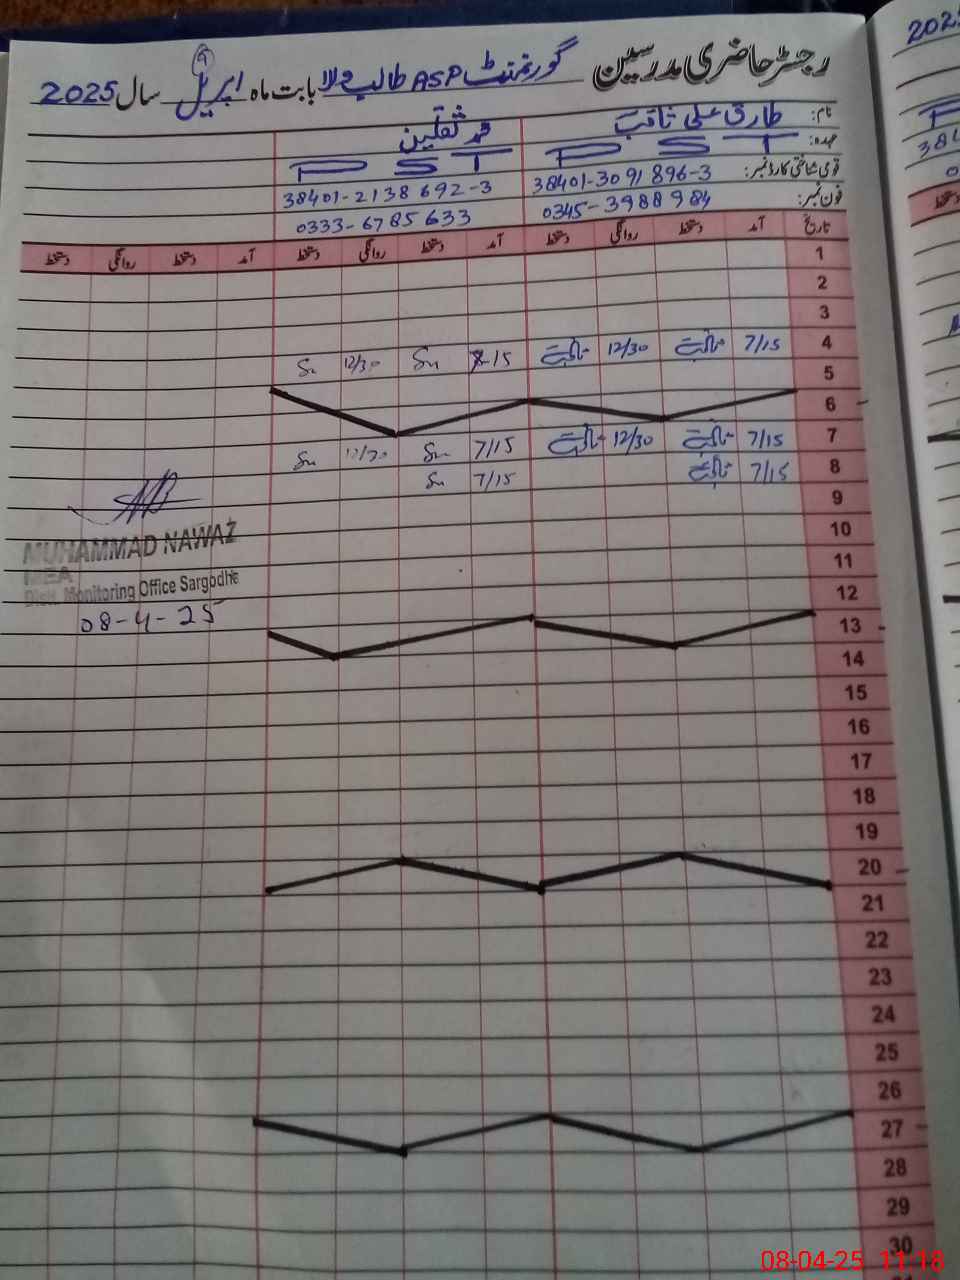 رجسٹر حاضری مدرسین گورنمنٹ ASP طالب والا بابت ماہ اپریل سال 2025
نام: طارق علی ثاقب محمد ثقلین
عہدہ: PST PST
قومی شناختی کارڈ نمبر: 38401-3091896-3 38401-2138692-3
فون نمبر: 0345-3988984 0333-6785633
تاریخ آمد دستخط روانگی دستخط آمد دستخط روانگی دستخط آمد دستخط روانگی دستخط
1
2
3
4 7/15 ثاقب 12/30 ثاقب 7-15 Su 12/30 Su
5
6
7 7/15 ثاقب 12/30 ثاقب 7/15 Su 12/30 Su
8 7/15 ثاقب 7/15 Su
9
10
11
12
13
14
15
16
17
18
19
20
21
22
23
24
25
26
27
28
29
30
MUHAMMAD NAWAZ
MEA
Distt. Monitoring Office Sargodha
08-4-25
2025
384
08-04-25 11:18